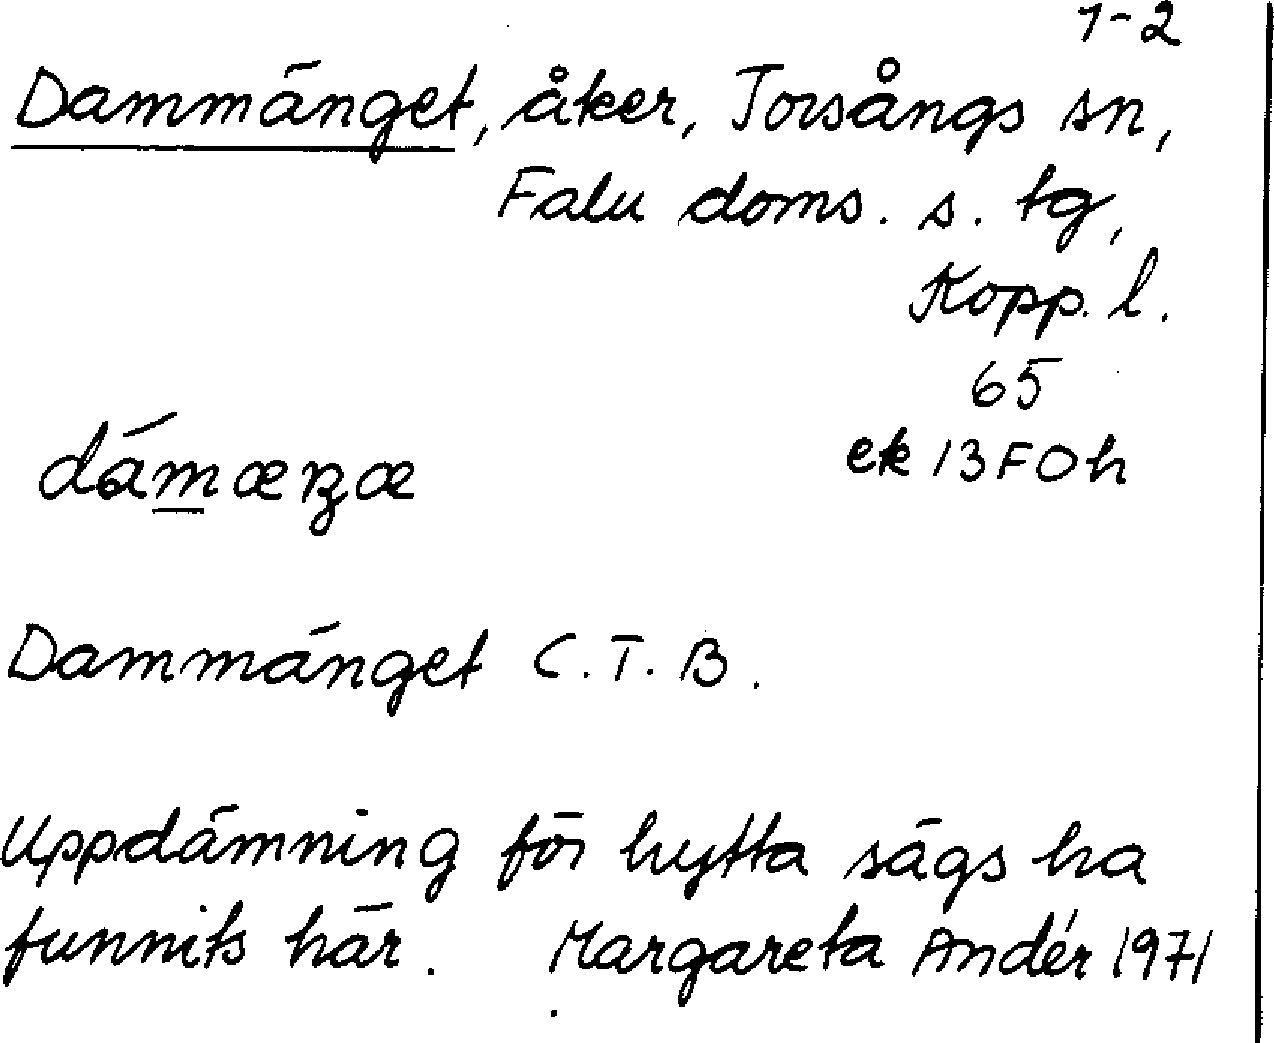 1-2
Dammänget, åker, Torsångs sn,
Falu doms. s. tg,
Kopp. l.
65
ek 13F0h
dámæŋæ
Dammänget C.T.B.
Uppdämning för hytta sägs ha
funnits här. Margareta Andér 1971